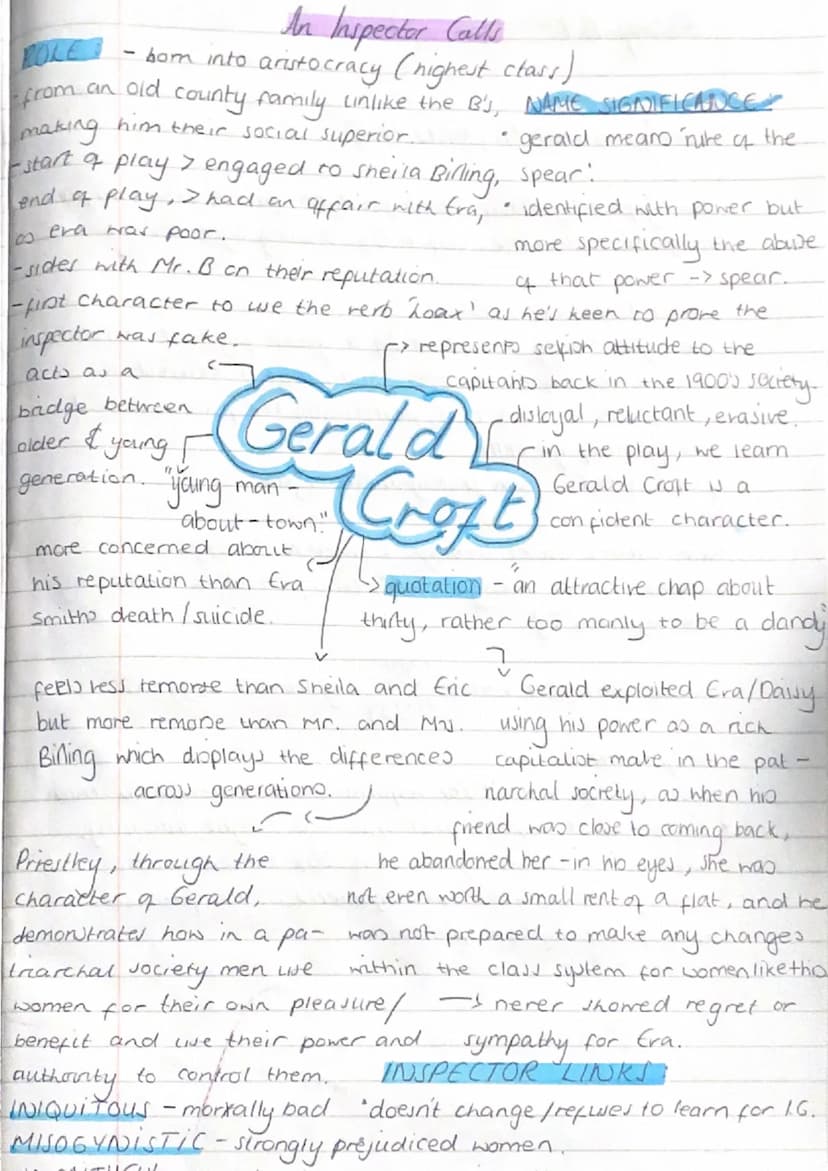 An Inspector Calls
ROLE: - born into aristocracy (highest class)
- from an old county family unlike the B's,
making him their social superior.
- start of play > engaged to Sheila Birling,
end of play, > had an affair with Eva,
as eva was poor.
- sides with Mr. B on their reputation.
- first character to use the verb 'hoax' as he's keen to prove the
inspector was fake.
NAME SIGNIFICANCE
• gerald means 'rule of the
spear'.
• identified with power but
more specifically the abuse
of that power -> spear.
acts as a
bridge between
older & young
generation.
-> represents selfish attitude to the
capitants back in the 1900's society.
disloyal, reluctant, evasive.
in the play, we learn
Gerald Croft is a
confident character.
Gerald
Croft
"young man-
about-town."
more concerned about
his reputation than Eva
Smiths death/suicide.
-> quotation - "an attractive chap about
thirty, rather too manly to be a dandy"
feels less remorse than Sheila and Eric
but more remorse than Mr. and Mrs.
Birling which displays the differences
across generations.
Gerald exploited Eva/Daisy
using his power as a rich
capitalist male in the pat-
riarchal society, as when his
friend was close to coming back,
he abandoned her - in his eyes, she was
not even worth a small rent of a flat, and he
was not prepared to make any changes
within the class system for women like this
-> never showed regret or
sympathy for Eva.
Priestley, through the
character of Gerald,
demonstrates how in a pa-
triarchal society men use
women for their own pleasure/
benefit and use their power and
authority to control them.
INSPECTOR LINKS:
• doesn't change/refuses to learn for I.G.
INIQUITOUS - morally bad
MISOGYNISTIC - strongly prejudiced women.